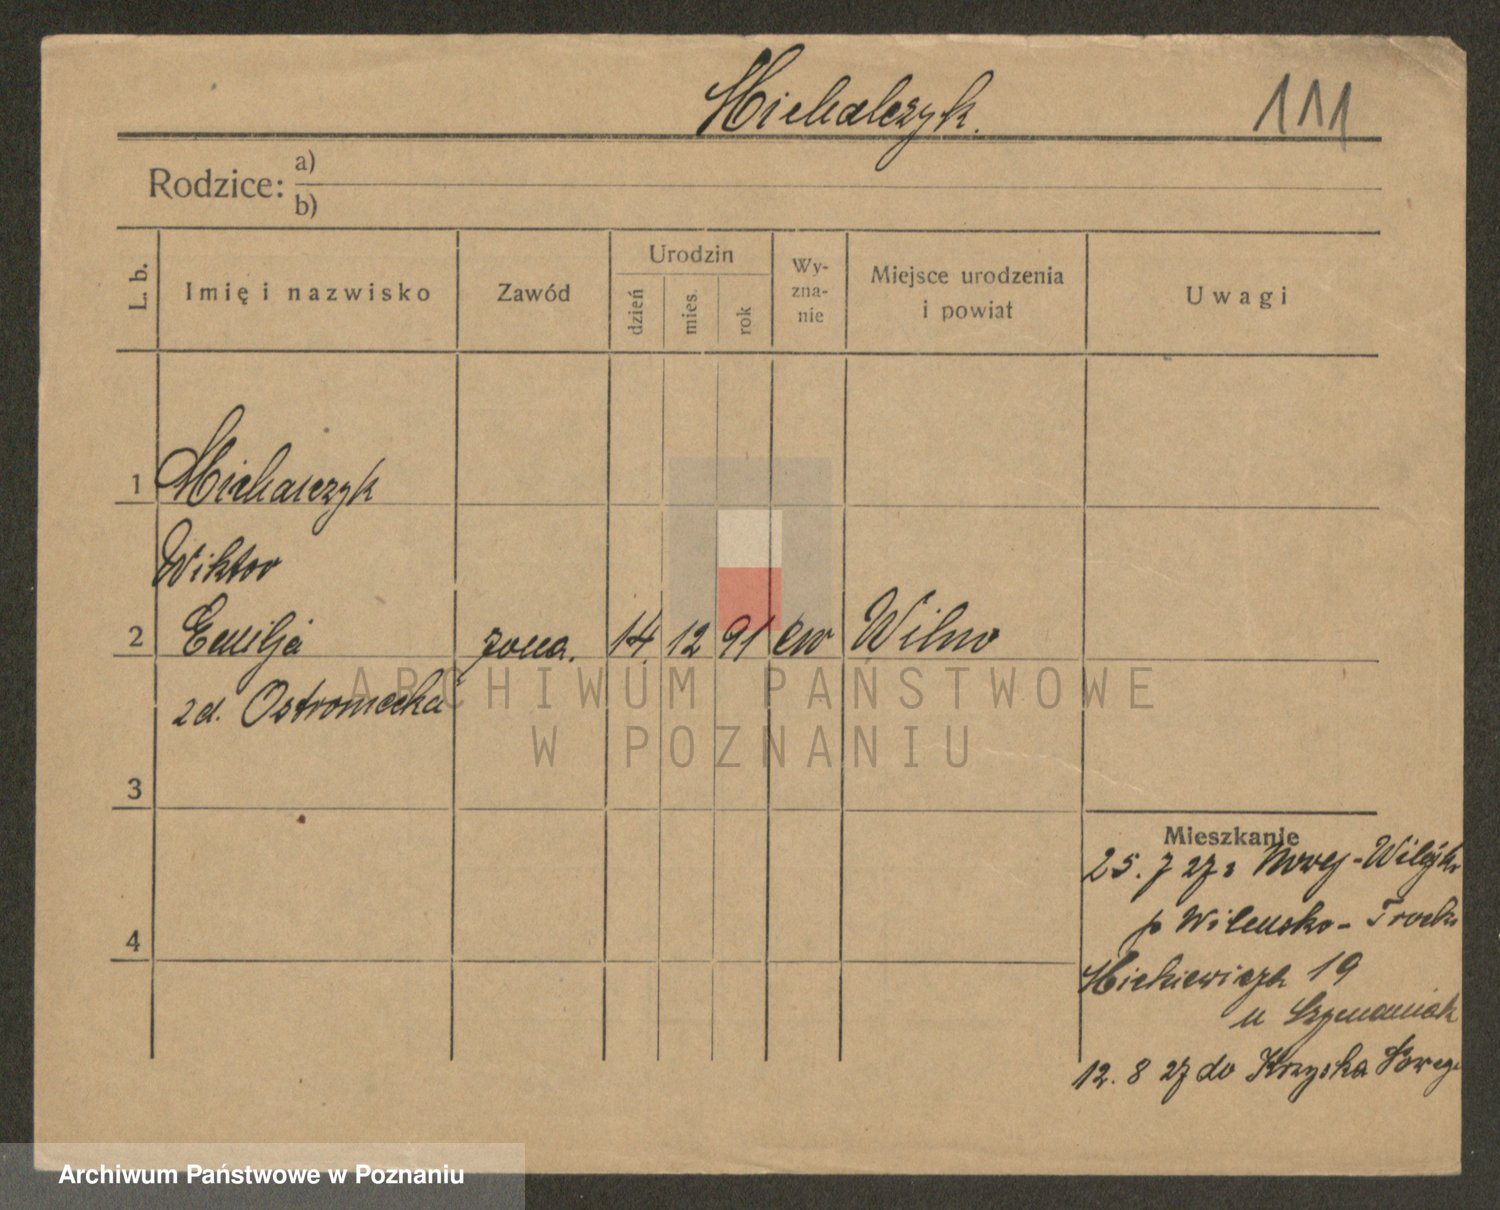 Michalczyk.
111
Rodzice: a)
b)
L. b.
Imię i nazwisko
Zawód
Urodzin
dzień
mies.
rok
Wy-
zna-
nie
Miejsce urodzenia
i powiat
Uwagi
1 Michalczyk
Wiktor
2 Emilja żona. 14 12 91 ew Wilno
zd. Ostromecka
ARCHIWUM PAŃSTWOWE
W POZNANIU
3
Mieszkanie
25. 7 27 z Nowej-Wilejki
p Wilensko-Trocki
4
Mickiewicza 19
u Szymaniak
12. 8 27 do Krzyska
Archiwum Państwowe w Poznaniu